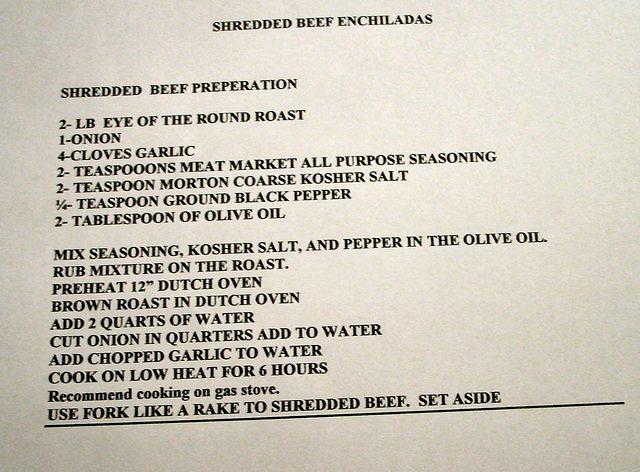 SHREDDED BEEF ENCHILADAS
SHREDDED BEEF PREPERATION
2- LB EYE OF THE ROUND ROAST
1-ONION
4-CLOVES GARLIC
2- TEASPOOONS MEAT MARKET ALL PURPOSE SEASONING
2- TEASPOON MORTON COARSE KOSHER SALT
¼- TEASPOON GROUND BLACK PEPPER
2- TABLESPOON OF OLIVE OIL
MIX SEASONING, KOSHER SALT, AND PEPPER IN THE OLIVE OIL.
RUB MIXTURE ON THE ROAST.
PREHEAT 12” DUTCH OVEN
BROWN ROAST IN DUTCH OVEN
ADD 2 QUARTS OF WATER
CUT ONION IN QUARTERS ADD TO WATER
ADD CHOPPED GARLIC TO WATER
COOK ON LOW HEAT FOR 6 HOURS
Recommend cooking on gas stove.
USE FORK LIKE A RAKE TO SHREDDED BEEF. SET ASIDE